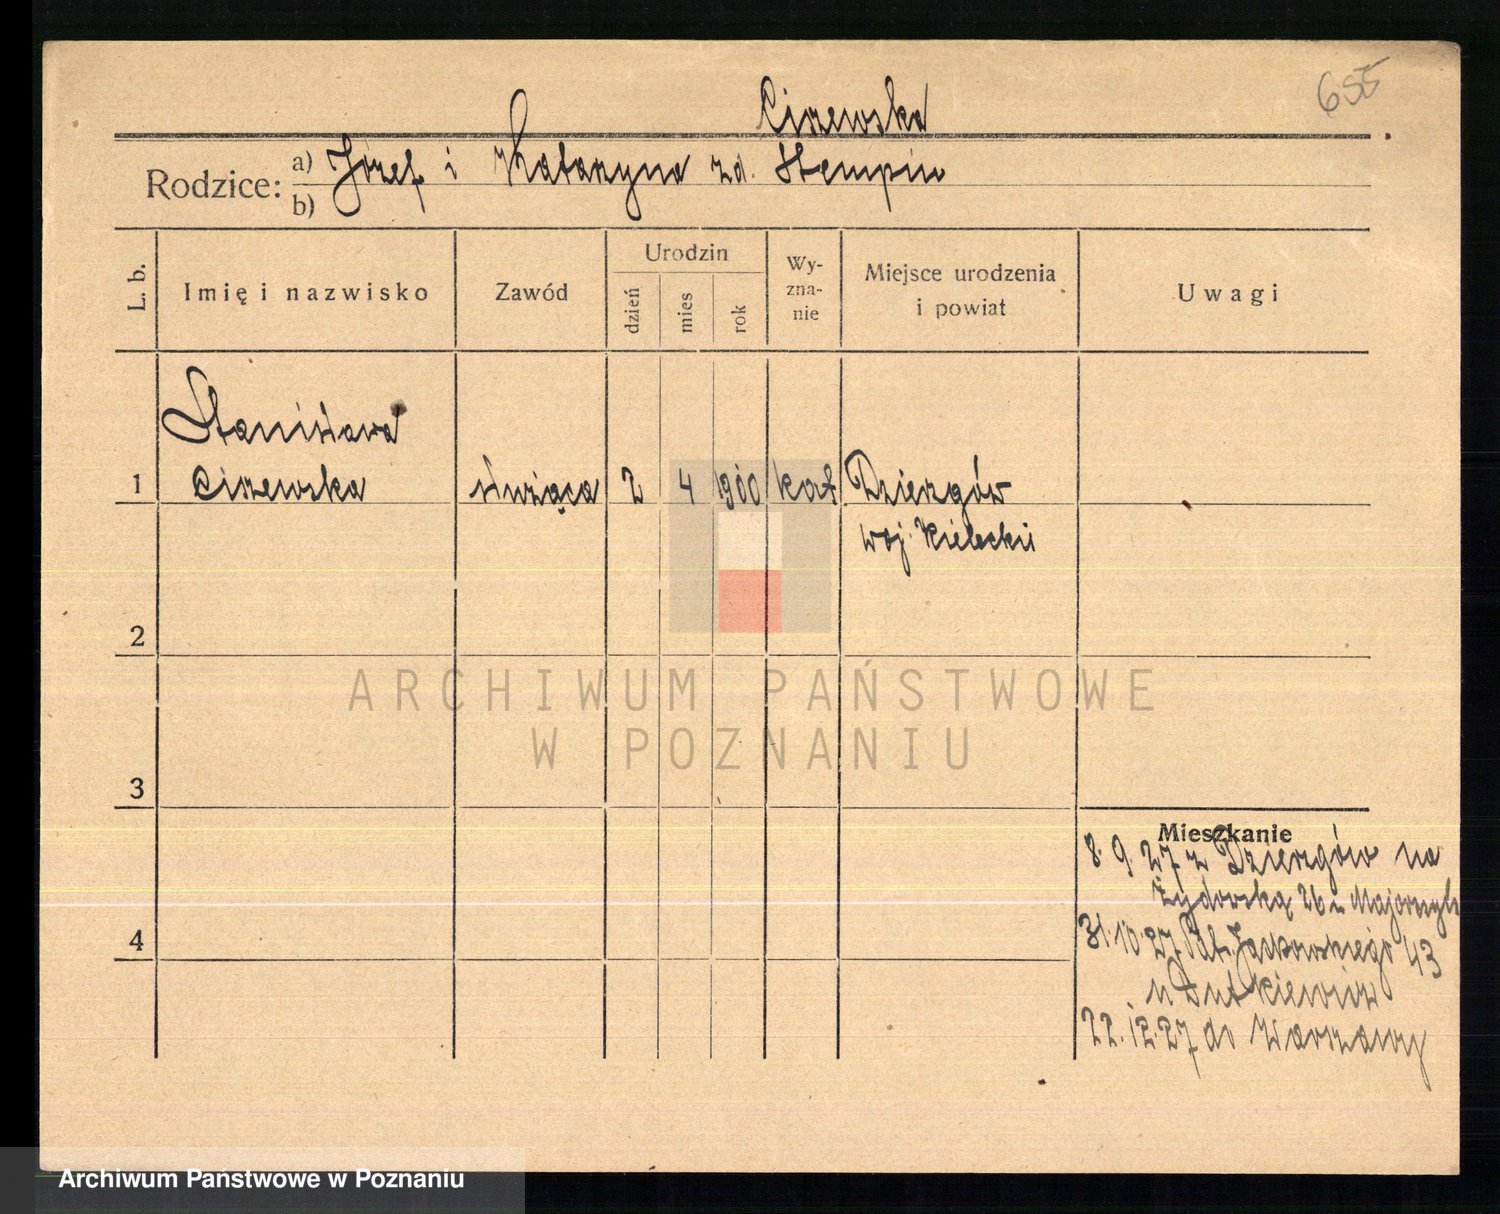 655
Ciszewska
Rodzice: a) Józef i Katarzyna zd. Stempin
b)
L. b. Imię i nazwisko Zawód Urodzin dzień mies rok Wy-zna-nie Miejsce urodzenia i powiat Uwagi
Stanisława
1 Ciszewska służąca 2 4 1900 kat Dzierzgów
woj. Kieleckie
2
ARCHIWUM PAŃSTWOWE
W POZNANIU
3
Mieszkanie
8.9.27 z Dzierzgów na
Żydowską 26 u
4
31.10.27 Jackowskiego 43
u Dutkiewicz
22.12.27 do Warszawy
Archiwum Państwowe w Poznaniu